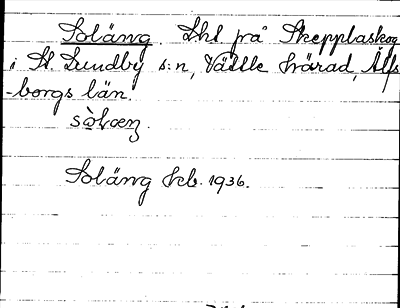 Soläng. Lht på Skepplaskog
i St. Lundby s:n, Vättle härad, Älfs
-borgs län.
sòlæŋ.
Soläng hb. 1936.